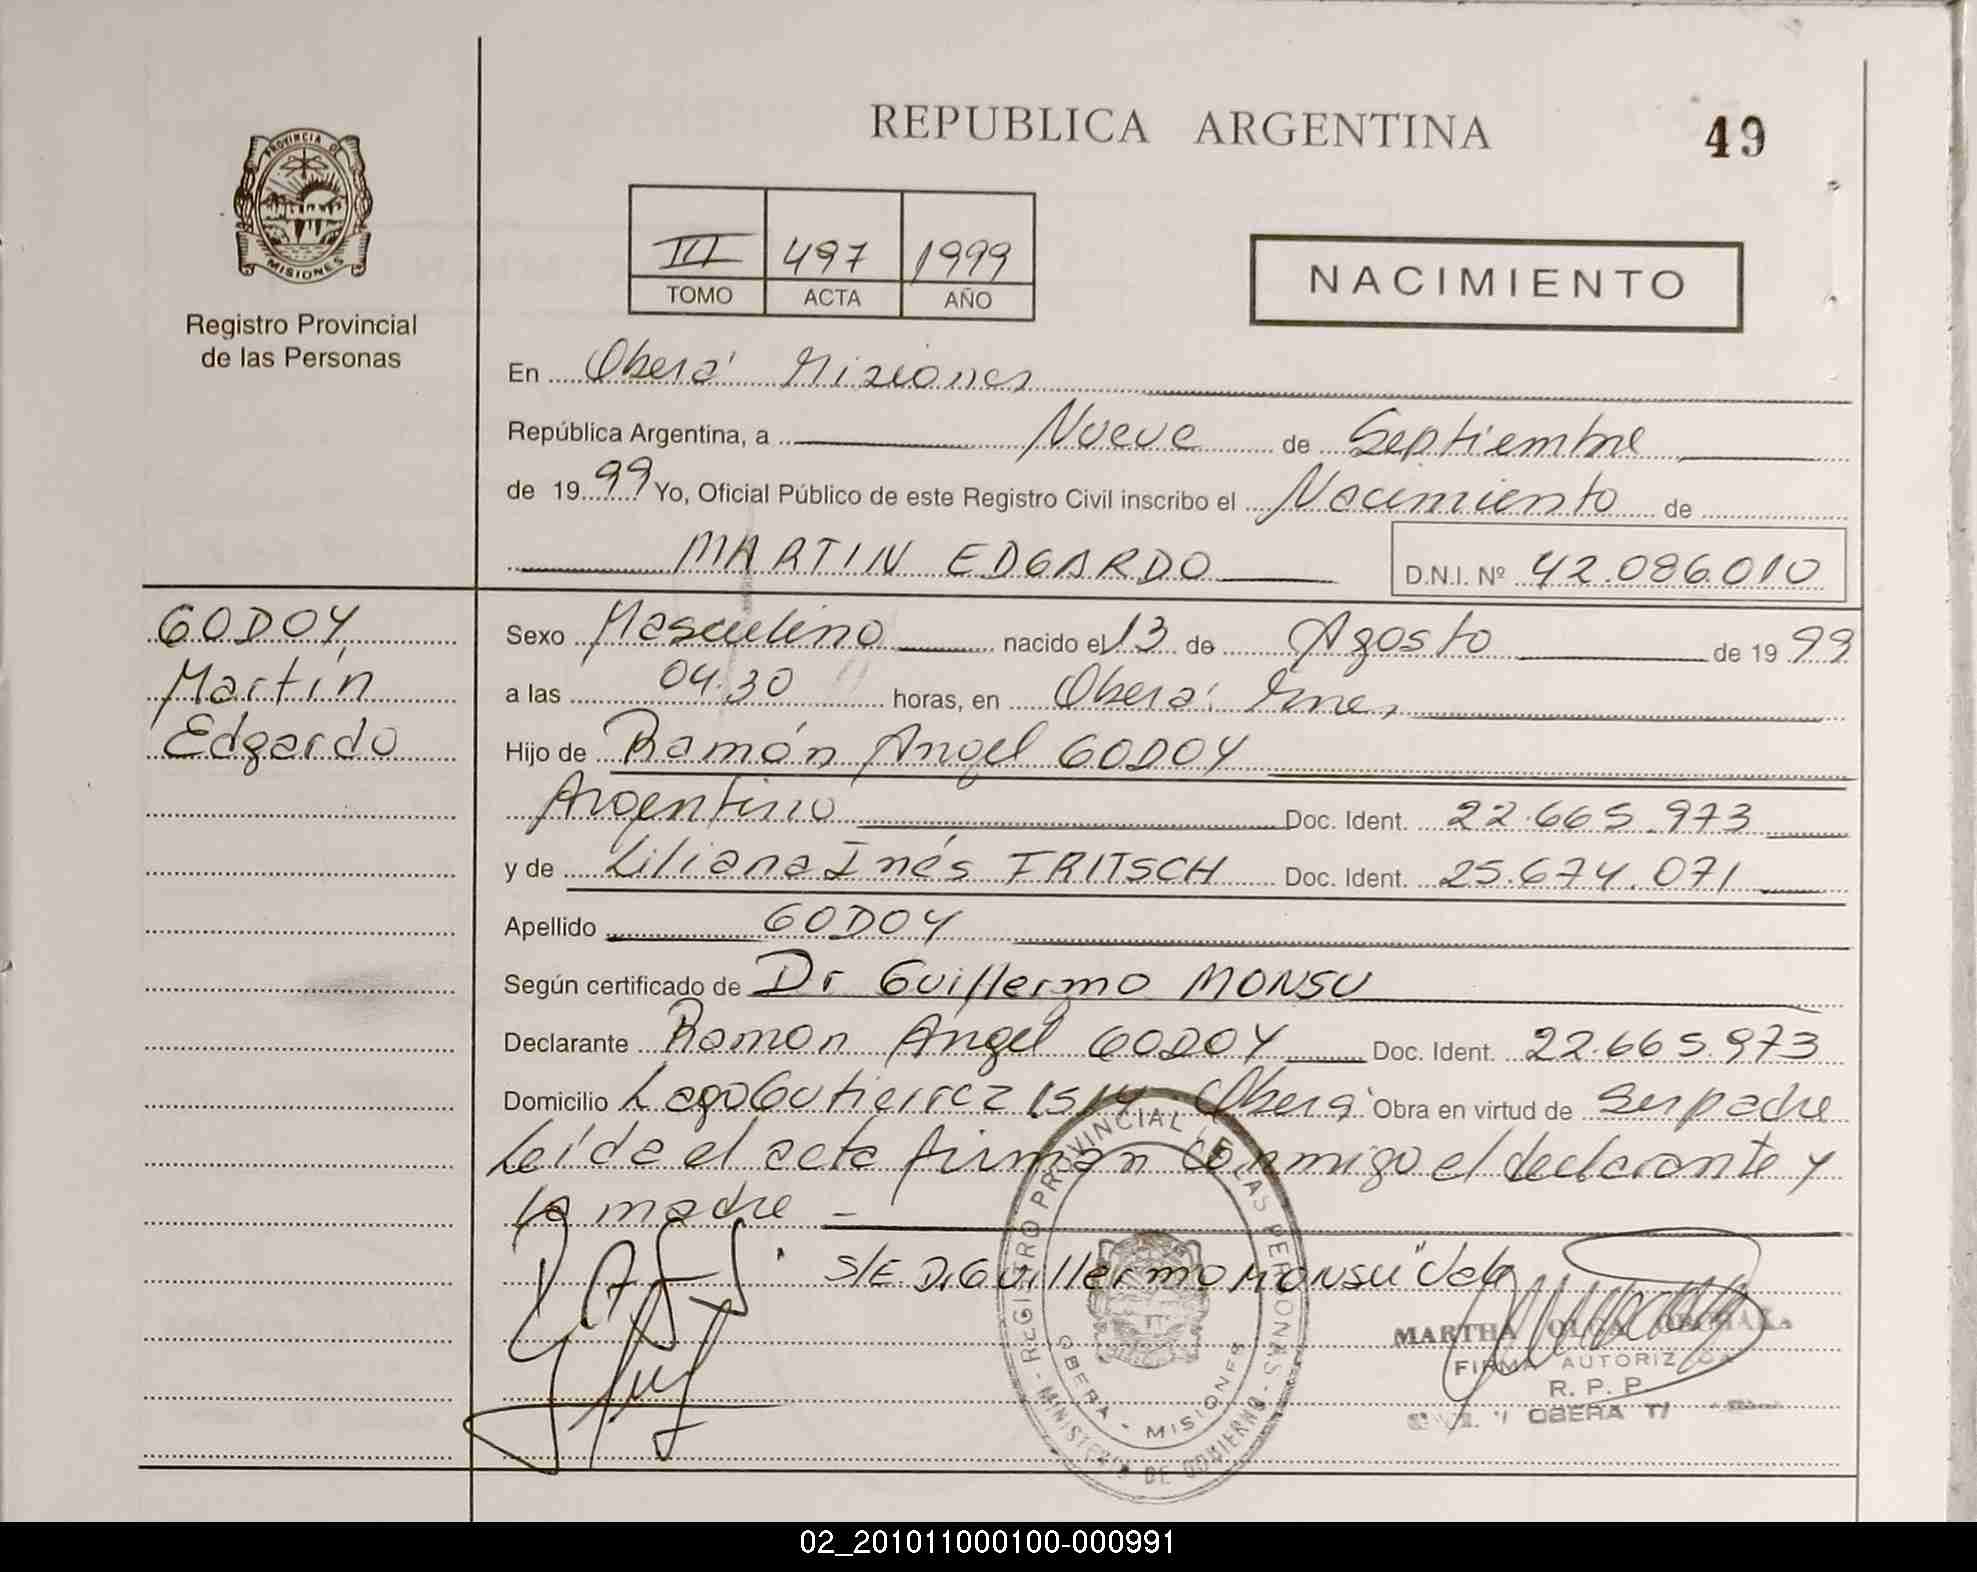 REPUBLICA ARGENTINA
49
PROVINCIA DE
MISIONES
Registro Provincial
de las Personas
III 497 1999
TOMO ACTA AÑO
NACIMIENTO
En Oberá Misiones
República Argentina, a Nueve de Septiembre
de 1999 Yo, Oficial Público de este Registro Civil inscribo el Nacimiento de
MARTIN EDGARDO D.N.I. Nº 42.086.010
GODOY
Martín
Edgardo
Sexo Masculino nacido el 13 de Agosto de 1999
a las 04.30 horas, en Oberá
Hijo de Ramón Angel GODOY
Argentino Doc. Ident. 22.665.973
y de Liliana Inés FRITSCH Doc. Ident. 25.674.071
Apellido GODOY
Según certificado de Dr Guillermo MONSU
Declarante Ramon Angel GODOY Doc. Ident. 22.665.973
Domicilio Lago Gutierrez 1514 Oberá Obra en virtud de ser padre
Leída el acta firman conmigo el declarante y
la madre –
S/E. Dr Guillermo MONSU Vale
REGISTRO PROVINCIAL DE LAS PERSONAS
OBERA - MISIONES
- MINISTERIO DE GOBIERNO -
MARTHA OLGA
FIRMA AUTORIZADA
R. P. P.
OBERA
02_201011000100-000991